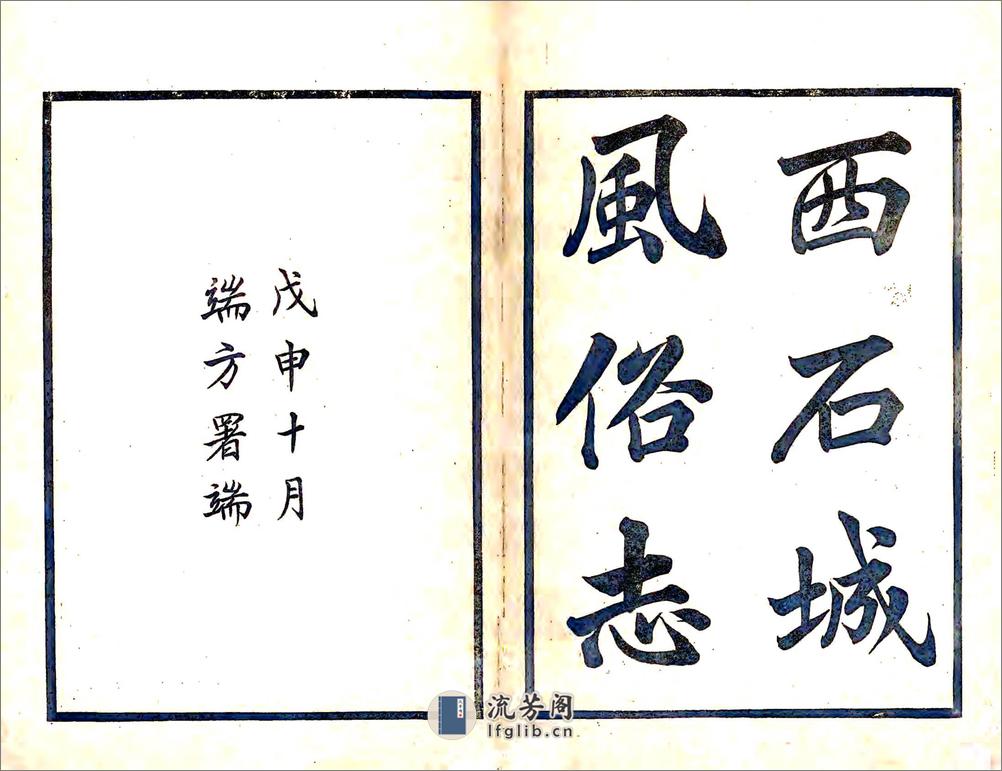 西石城
風俗志
戊申十月
端方署端
流芳阁
lfglib.cn